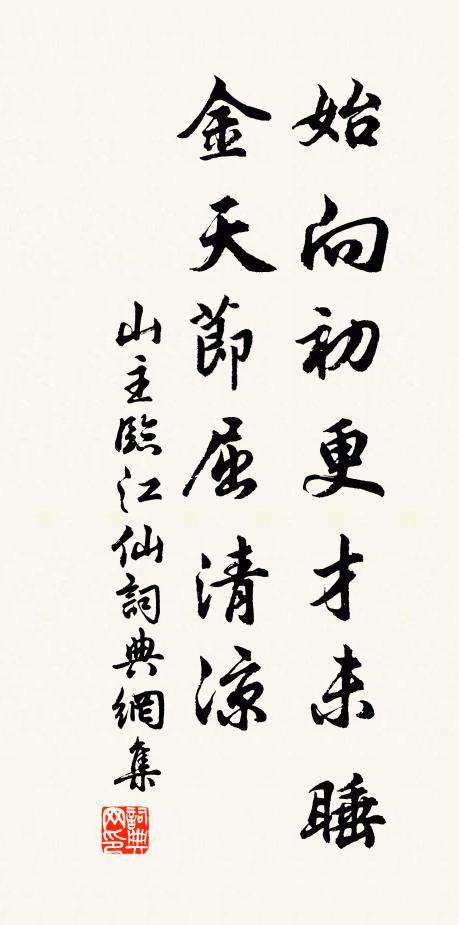 始向初更才未睡
金天節屆清涼
山主臨江仙詞典網集
詞典网印